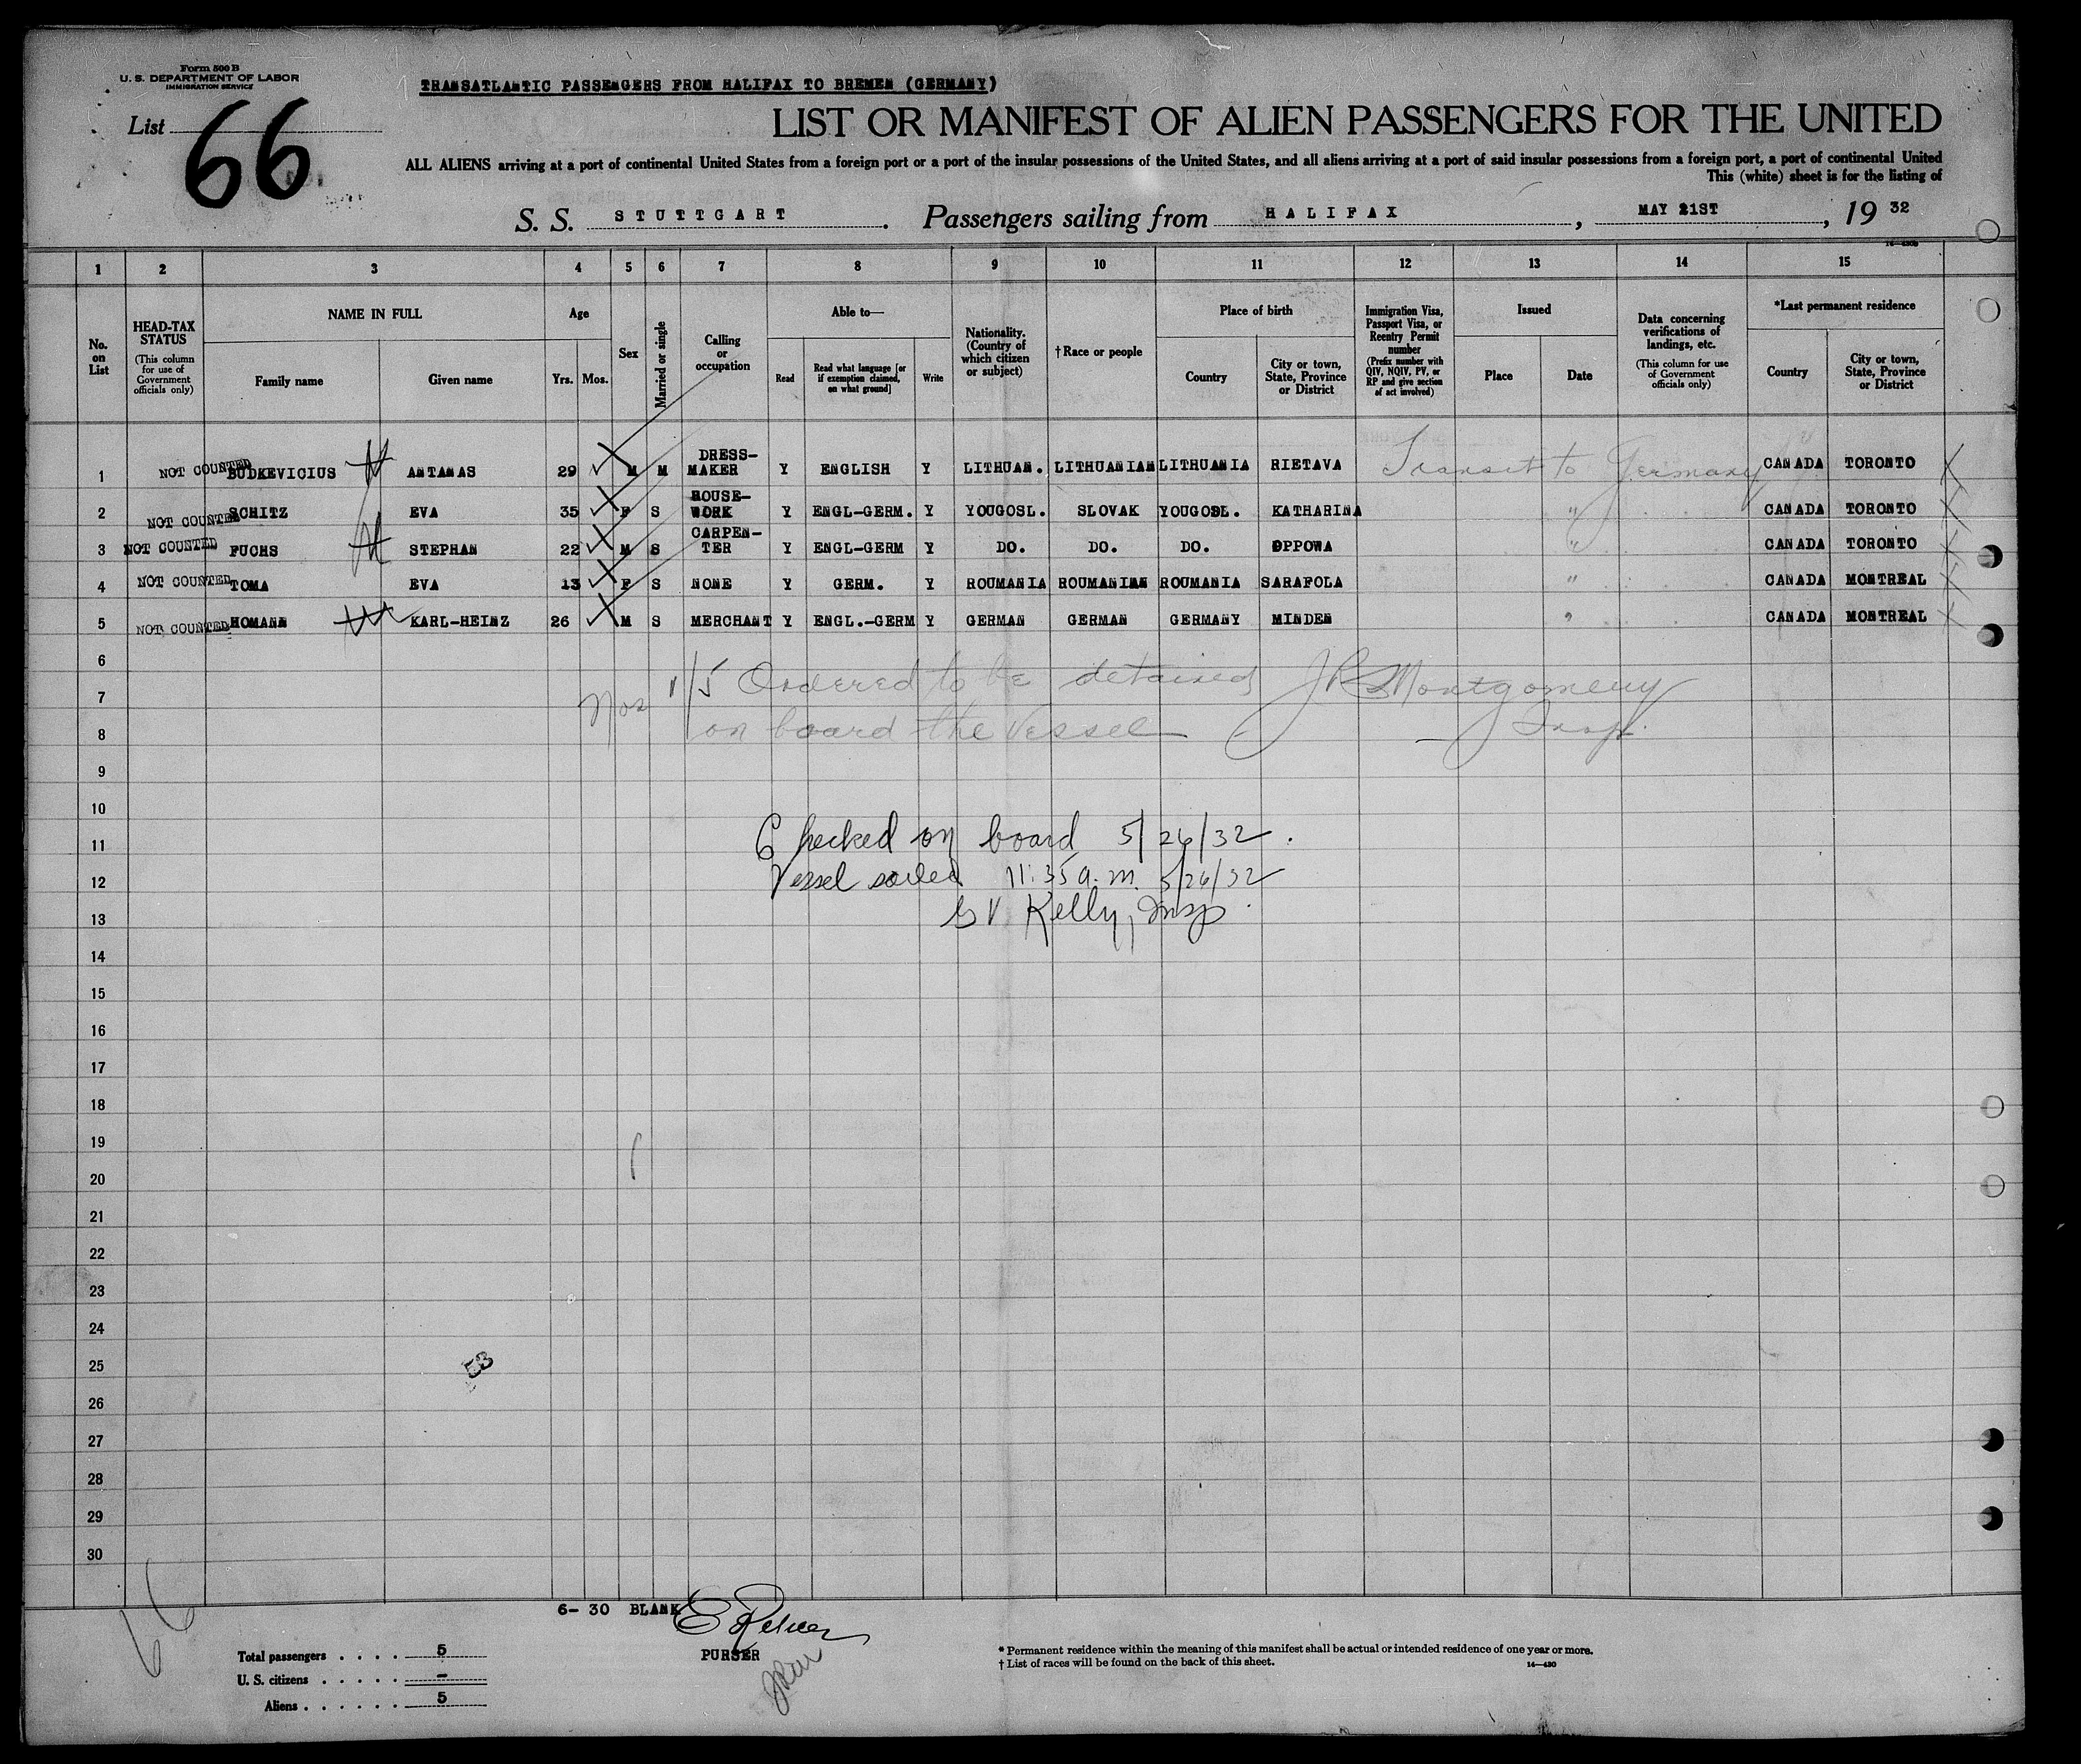 Form 500 B
U. S. DEPARTMENT OF LABOR
IMMIGRATION SERVICE
TRANSATLANTIC PASSENGERS FROM HALIFAX TO BREMEN (GERMANY)
List 66
LIST OR MANIFEST OF ALIEN PASSENGERS FOR THE UNITED
ALL ALIENS arriving at a port of continental United States from a foreign port or a port of the insular possessions of the United States, and all aliens arriving at a port of said insular possessions from a foreign port, a port of continental United
This (white) sheet is for the listing of
S. S. STUTTGART. Passengers sailing from HALIFAX, MAY 21ST, 19 32
1 2 3 4 5 6 7 8 9 10 11 12 13 14 15
No. on List
HEAD-TAX STATUS (This column for use of Government officials only)
NAME IN FULL
Family name
Given name
Age
Yrs. Mos.
Sex
Married or single
Calling or occupation
Able to—
Read
Read what language [or if exemption claimed, on what ground]
Write
Nationality. (Country of which citizen or subject)
†Race or people
Place of birth
Country
City or town, State, Province or District
Immigration Visa, Passport Visa, or Reentry Permit number (Prefix number with QIV, NQIV, PV, or RP and give section of act involved)
Issued
Place
Date
Data concerning verifications of landings, etc. (This column for use of Government officials only)
*Last permanent residence
Country
City or town, State, Province or District
1 NOT COUNTED BUDKEVICIUS ANTANAS 29 M M DRESS-MAKER Y ENGLISH Y LITHUAN. LITHUANIAN LITHUANIA RIETAVA Transit to Germany CANADA TORONTO
2 NOT COUNTED SCHITZ EVA 35 F S HOUSE-WORK Y ENGL-GERM. Y YOUGOSL. SLOVAK YOUGOSL. KATHARINA " CANADA TORONTO
3 NOT COUNTED FUCHS STEPHAN 22 M S CARPEN-TER Y ENGL-GERM Y DO. DO. DO. OPPOWA " CANADA TORONTO
4 NOT COUNTED TOMA EVA 13 F S NONE Y GERM. Y ROUMANIA ROUMANIAN ROUMANIA SARAFOLA " CANADA MONTREAL
5 NOT COUNTED HOMANN KARL-HEINZ 26 M S MERCHANT Y ENGL.-GERM Y GERMAN GERMAN GERMANY MINDEN " CANADA MONTREAL
6
7 Nos 1/5 Ordered to be detained J R Montgomery
8 on board the vessel Insp.
9
10
11 Checked on board 5/26/32.
12 Vessel sailed 11:35 a.m. 5/26/32
13 G V Kelly, Insp.
14
15
16
17
18
19
20
21
22
23
24
25 53
26
27
28
29
30
66
6- 30 BLANK
PURSER
Total passengers . . . . 5
U. S. citizens . . . . . –
Aliens . . . . . . 5
* Permanent residence within the meaning of this manifest shall be actual or intended residence of one year or more.
† List of races will be found on the back of this sheet.
14—430